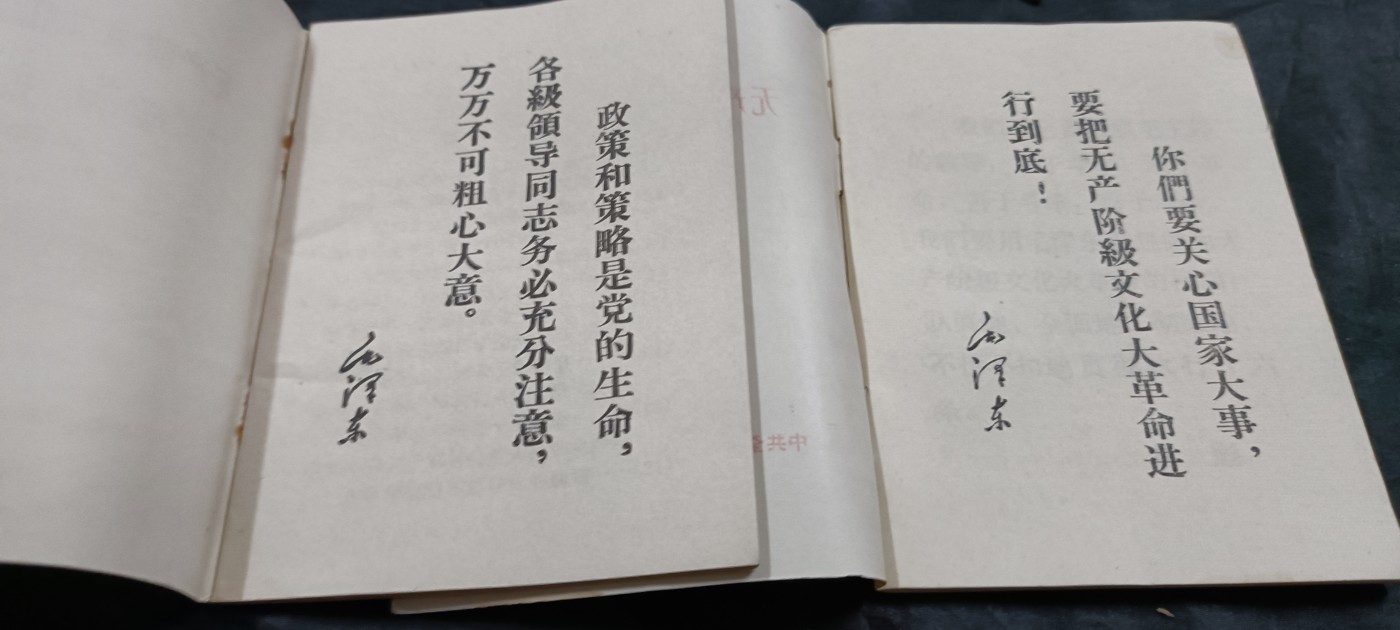 政策和策略是党的生命，
各級領导同志务必充分注意，
万万不可粗心大意。
毛泽东
你們要关心国家大事，
要把无产阶級文化大革命进
行到底！
毛泽东
无
中共